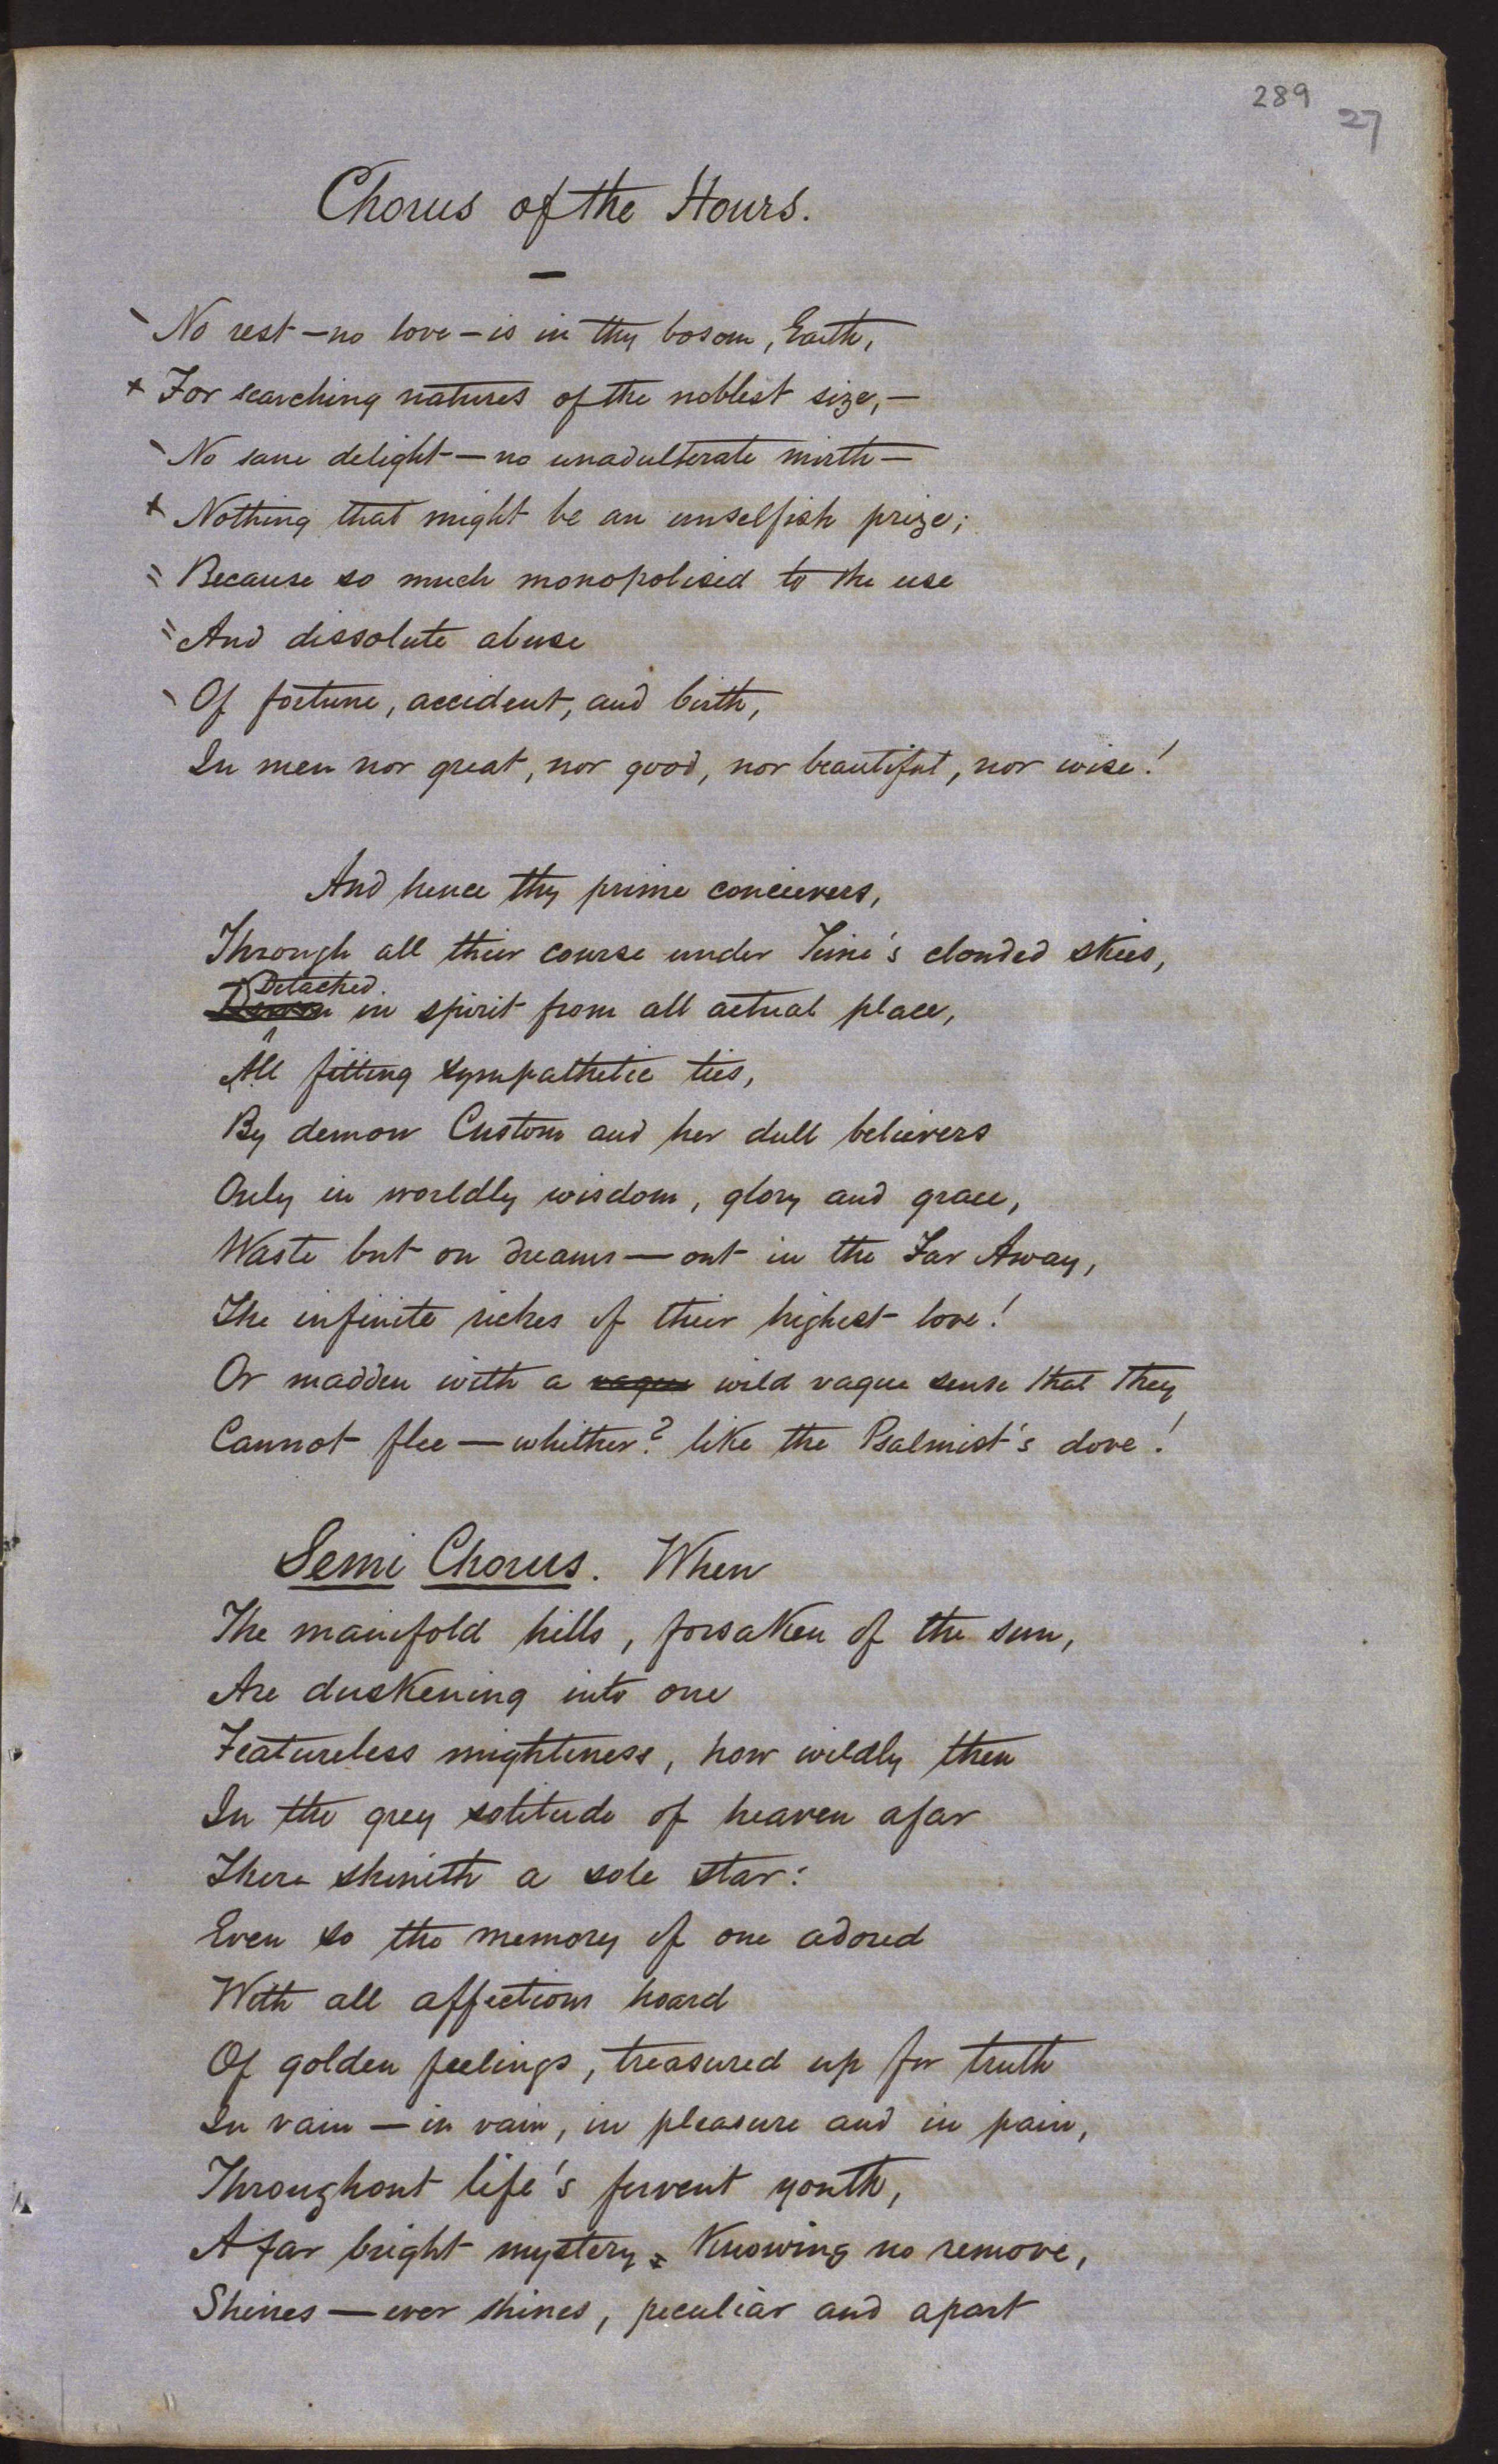 289
27
Chorus of the Hours.
No rest — no love — is in thy bosom, Earth,
+ For searching natures of the noblest size, —
No sane delight — no unadulterate mirth —
+ Nothing that might be an unselfish prize;
Because so much monopolised to the use
And dissolute abuse
Of fortune, accident, and birth,
In men nor great, nor good, nor beautiful, nor wise!
And hence thy prime concievers,
Through all their course under Time's clouded skies,
Detached
in spirit from all actual place,
All fitting sympathetic ties,
By demon Custom and her dull believers
Only in worldly wisdom, glory and grace,
Waste but on dreams — out in the Far Away,
The infinite riches of their highest love!
Or madden with a vague wild vague sense that they
Cannot flee — whither? like the Psalmist's dove!
Semi Chorus. When
The manifold hills, forsaken of the sun,
Are duskening into one
Featureless mightiness, how wildly then
In the grey solitude of heaven afar
There shineth a sole star:
Even so the memory of one adored
With all affections hoard
Of golden feelings, treasured up for truth
In vain — in vain, in pleasure and in pain,
Throughout life's fervent youth,
A far bright mystery, Knowing no remove,
Shines — ever shines, peculiar and apart